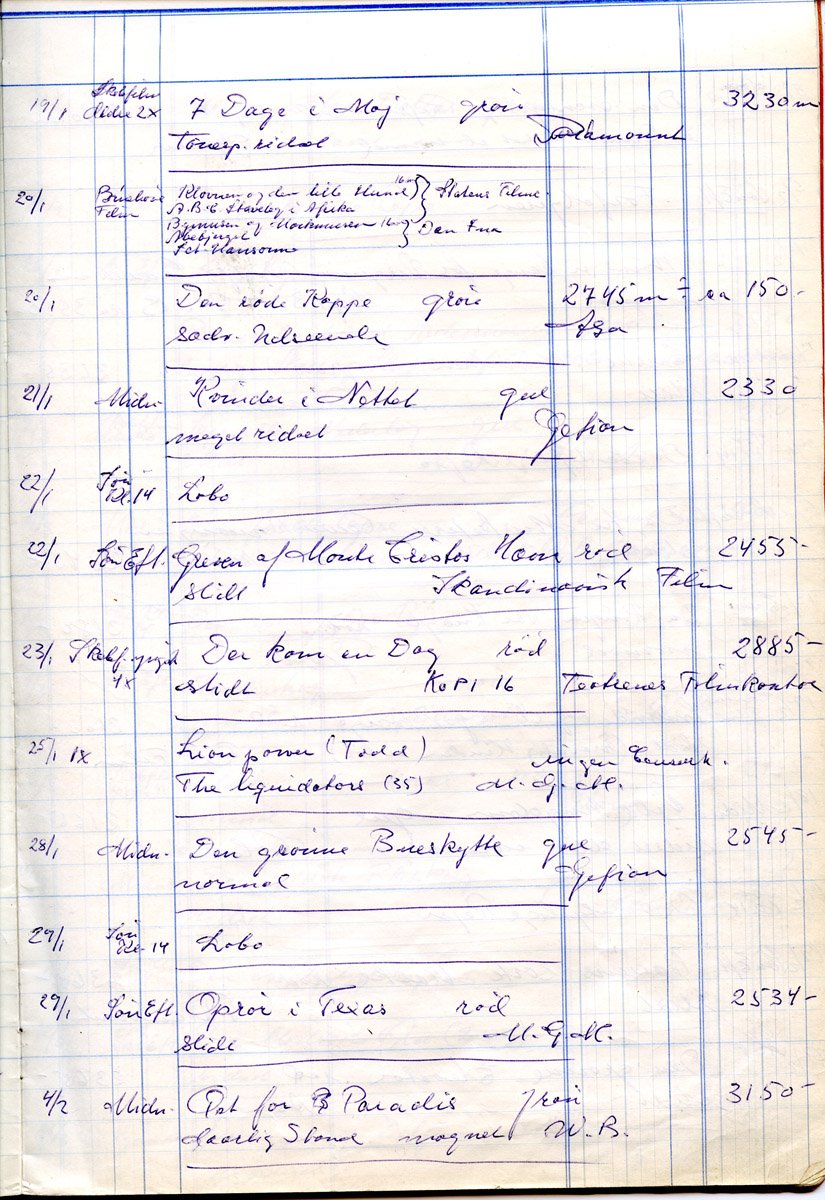 19/1 2x 7 Dage i Maj grøn 3230 m
Tonesp. ridset Paramount
20/1 Klovnen og den lille Hund 16mm } Statens Filmc.
Film A.B.C. i Afrika
Bymusen og Markmusen 16mm } Dan Ina
20/1 Den røde Kappe grøn 2745 m ÷ ca 150-
sædv. Udseende Asa
21/1 Midn- Kvinder i Nettet gul 2330
meget ridset Gefion
22/1 Søn Kl. 14 Lobo
22/1 Søn Eft. Greven af Monte Cristos Hævn rød 2455-
slidt Skandinavisk Film
23/1 Der kom en Dag rød 2885-
4x slidt KoPI 16 Teatrenes Filmkontor
25/1 1x Lion power (Todd) ingen Censurk.
The liquidators (35) M.G.M.
28/1 Midn- Den grønne Bueskytte gul 2545-
normal Gefion
29/1 Søn Kl- 14 Lobo
29/1 Søn Eft. Oprør i Texas rød 2534-
slidt M.G.M.
4/2 Midn- Pst for Paradis grøn 3150-
daarlig Stand magnet W.B.